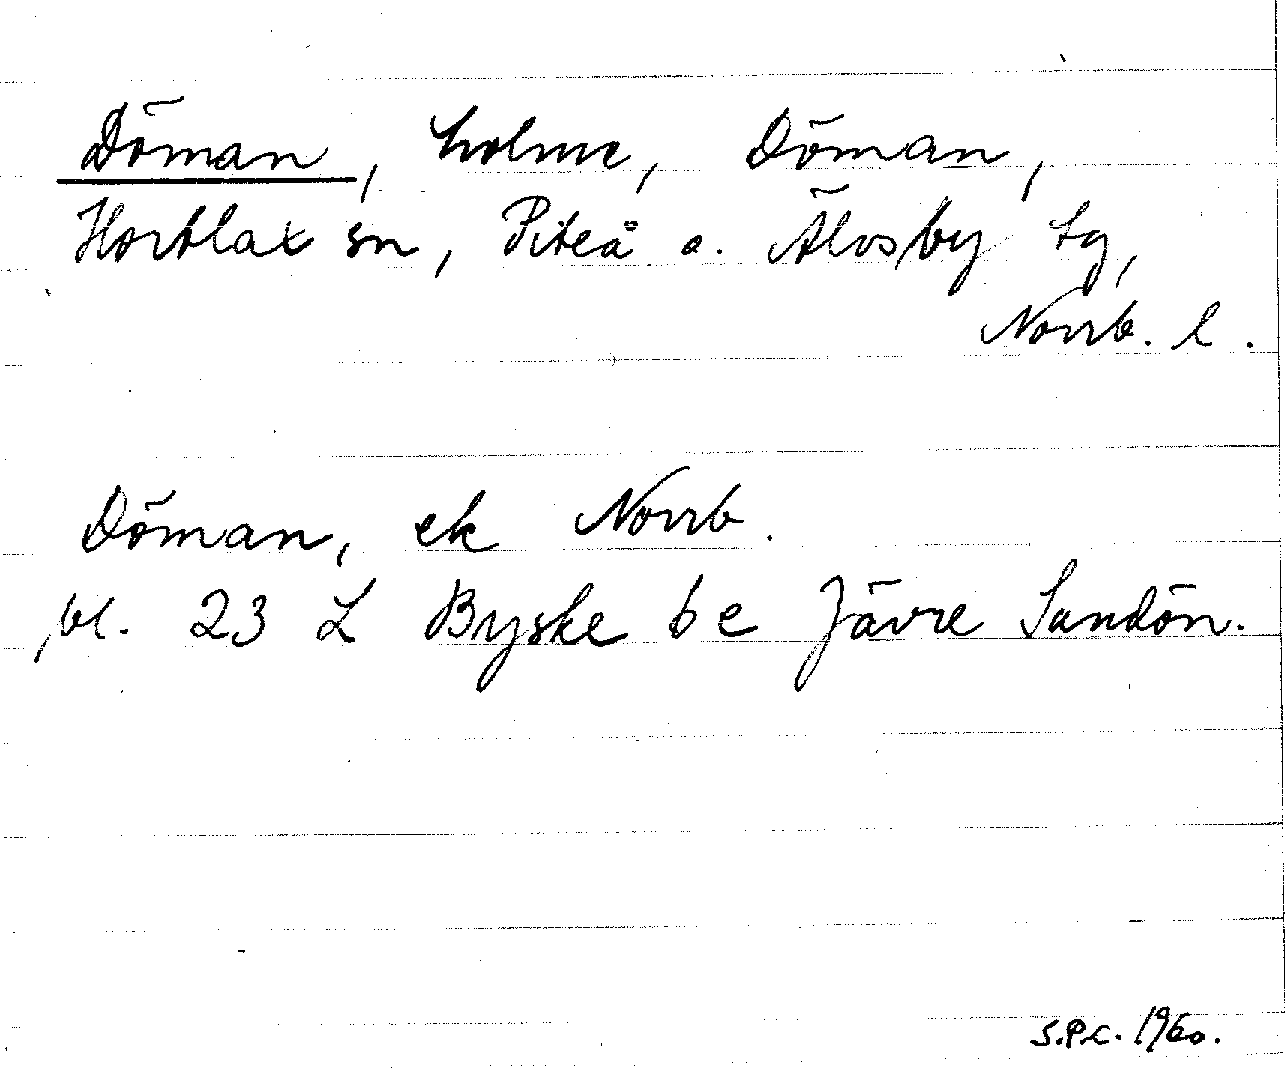 Döman, holme, Döman,
Hortlax sn, Piteå o. Älvsby tg,
Norrb. l.
Döman, ek Norrb.
bl. 23 L Byske b e Jävre Sandön.
S.P.C. 1960.